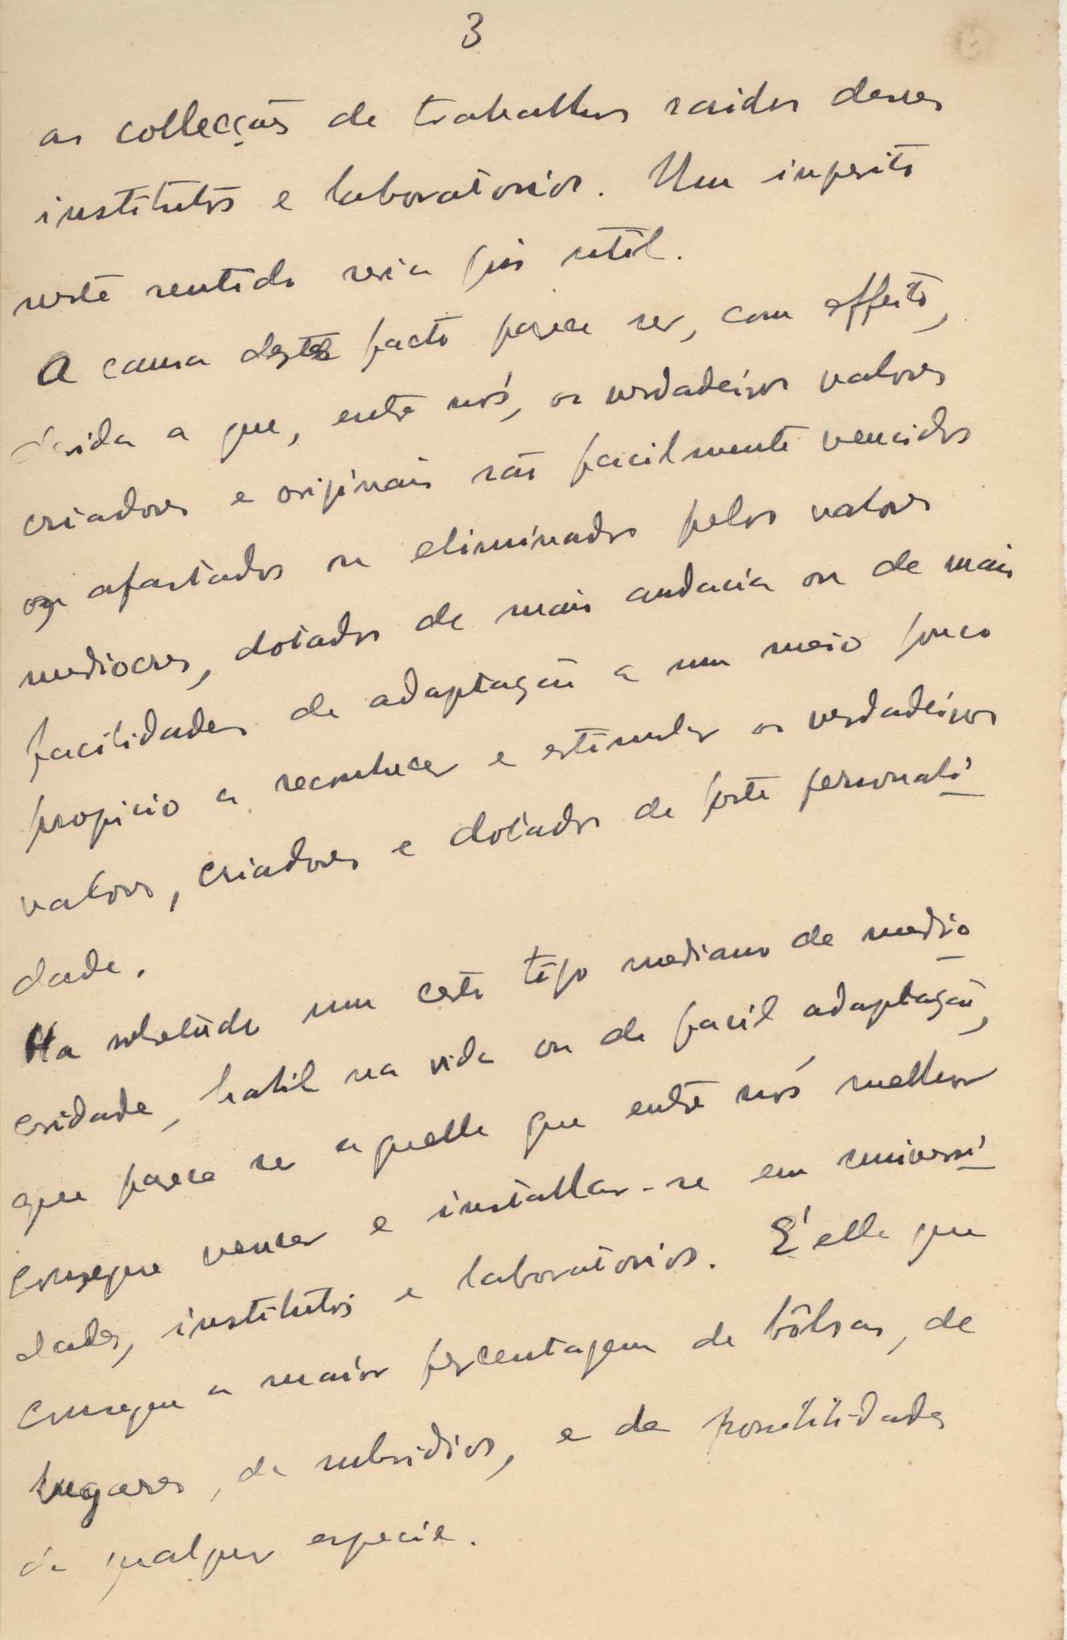 3
as collecções de trabalhos saidos desses
institutos e laboratorios. Um inquerito
neste sentido seria pois util.
A causa deste facto parece ser, com effeito,
devida a que, entre nós, os verdadeiros valores
criadores e originais são facilmente vencidos
ou afastados ou eliminados pelos valores
mediocres, dotados de mais audacia ou de mais
facilidades de adaptação a um meio pouco
propicio a reconhecer e estimular os verdadeiros
valores, criadores e dotados de forte personali
dade.
Ha sobretudo um certo tipo mediano de medio
cridade, habil na vida ou de facil adaptação,
que parece ser aquelle que entre nós melhor
consegue vencer e installar-se em universi
dades, institutos e laboratorios. E' elle que
consegue a maior percentagem de bôlsas, de
lugares, de subsidios, e de possibilidades
de qualquer especie.